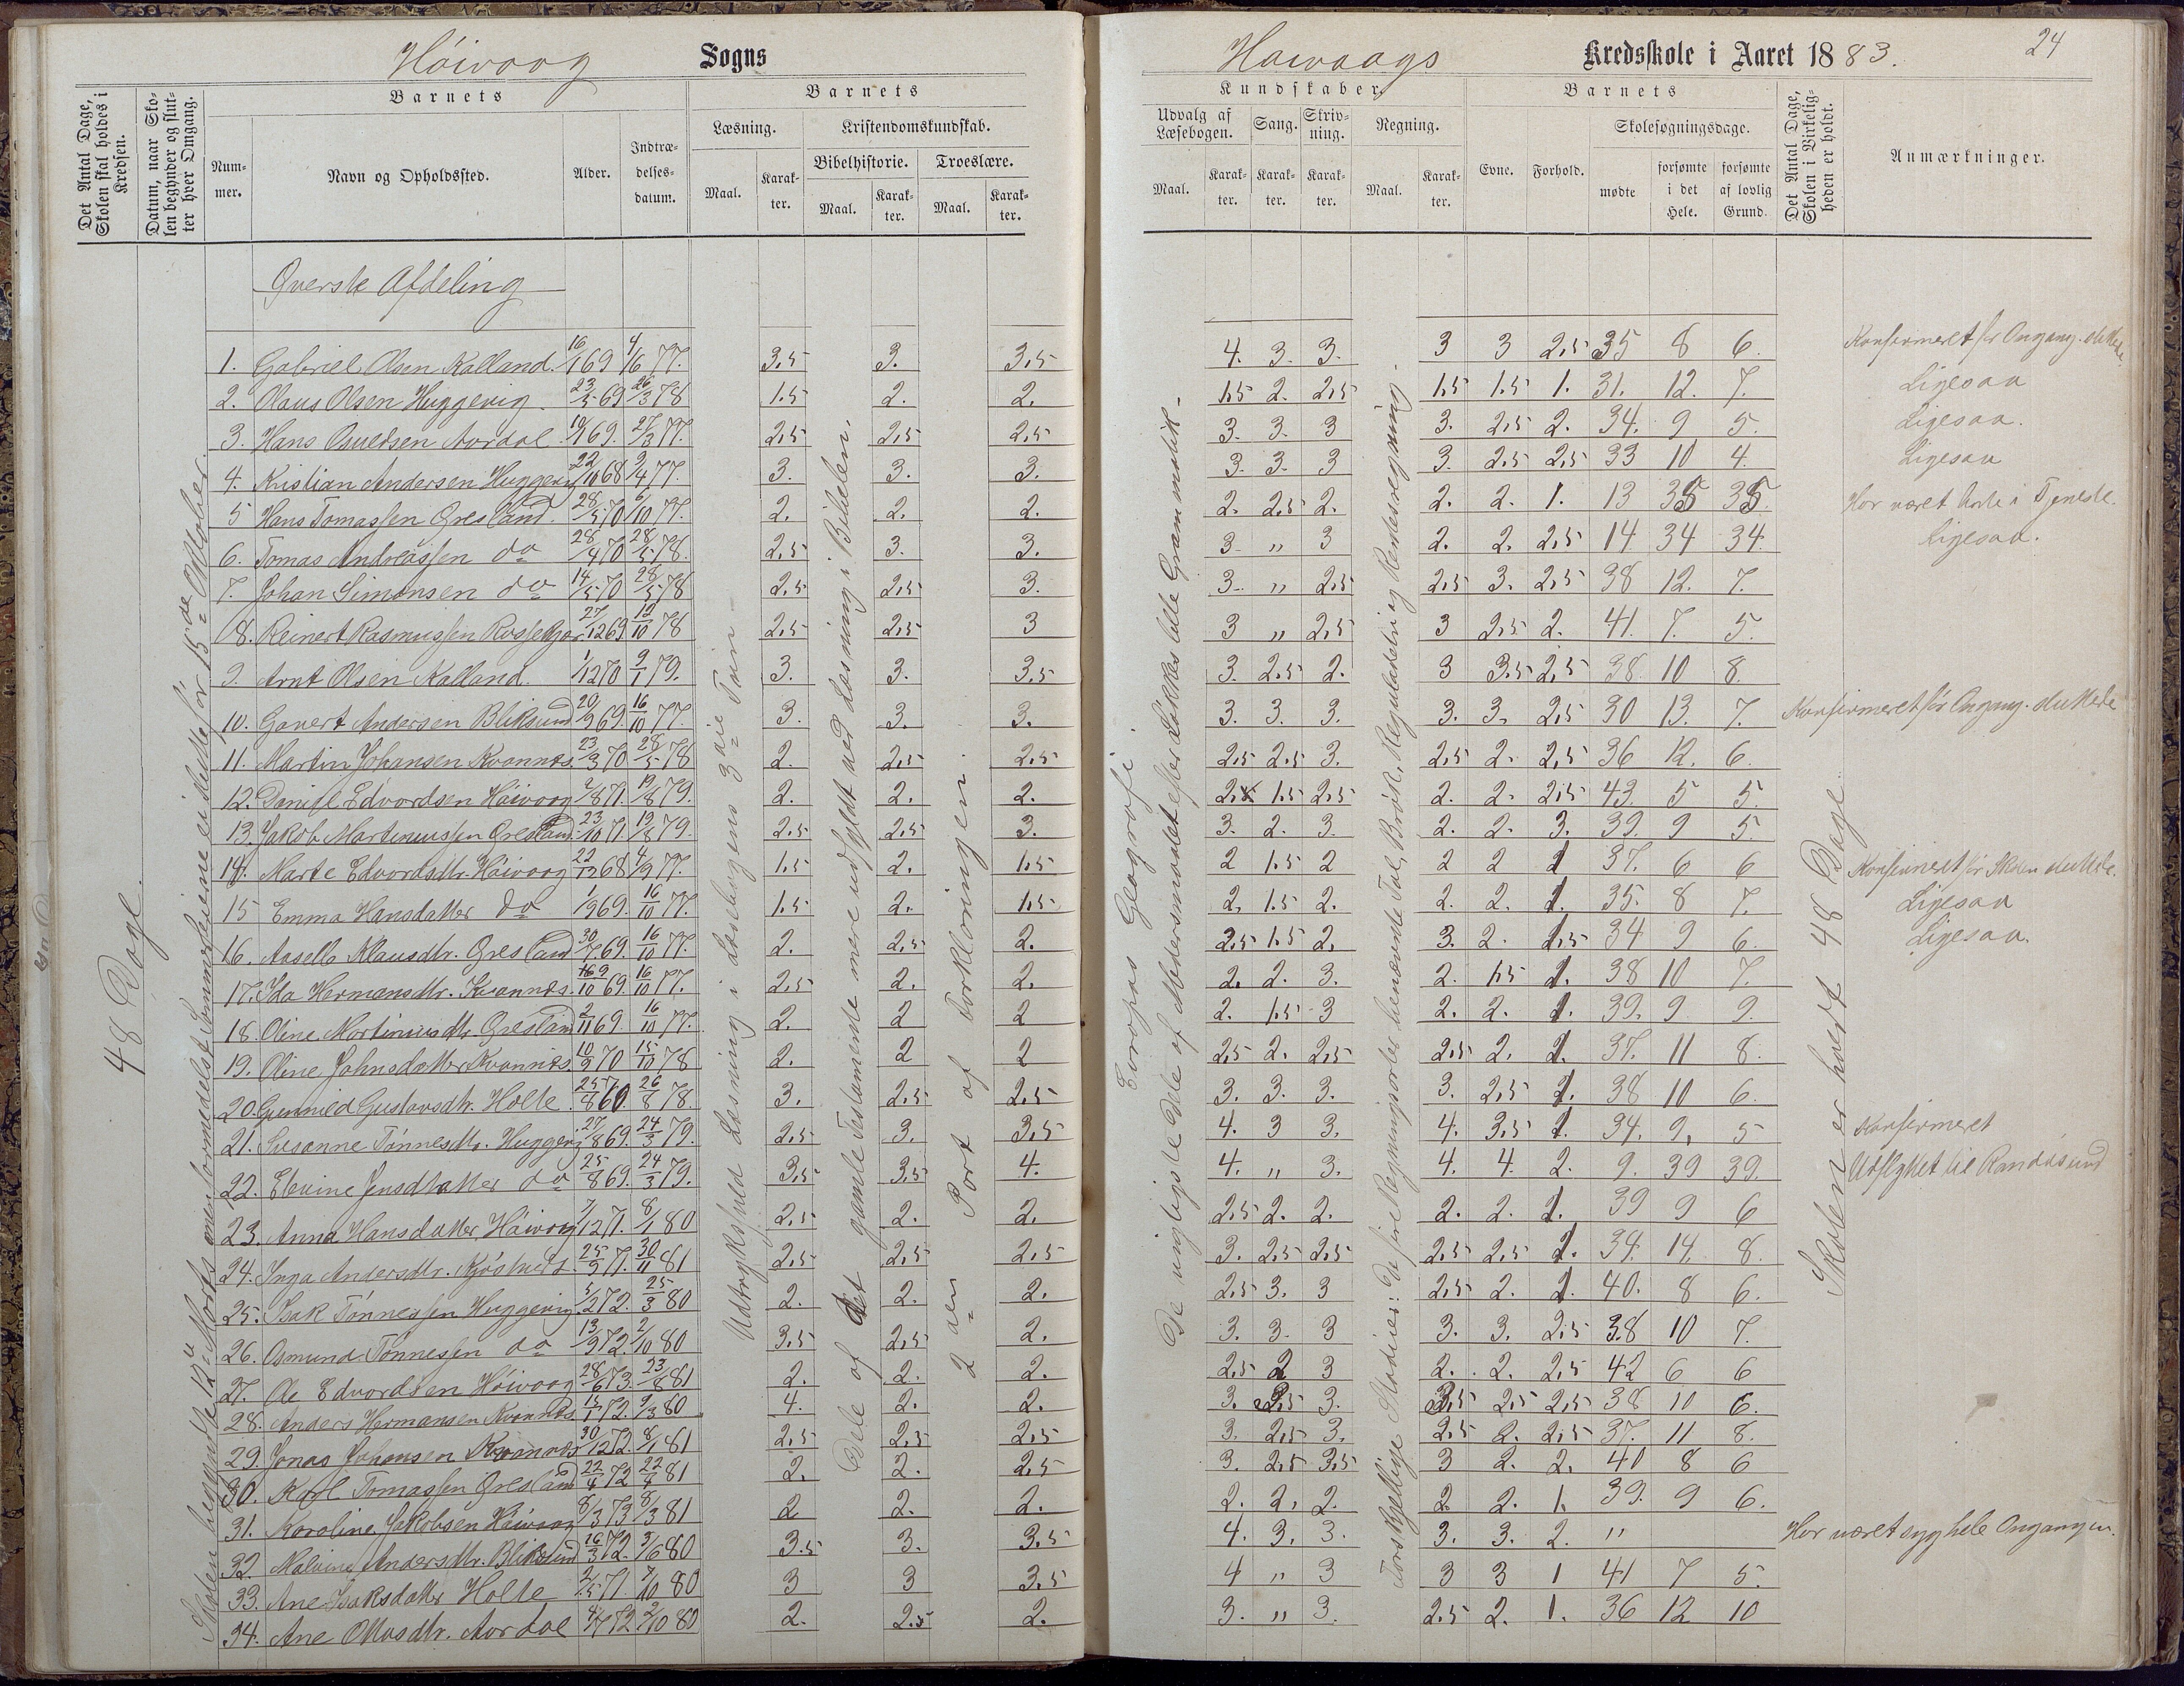 Höivoag Sogns
Høivaags Kredsskole i Aaret 1883.
24
Det Antal Dage, Skolen skal holdes i Kredsen.
Datum, naar Skolen begynder og slutter hver Omgang.
Barnets
Nummer.
Navn og Opholdssted.
Alder.
Indtrædelsesdatum.
Barnets
Læsning.
Maal.
Karakter.
Kristendomskundskab.
Bibelhistorie.
Maal.
Karakter.
Troeslære.
Maal.
Karakter.
Kundskaber.
Udvalg af Læsebogen.
Maal.
Karakter.
Sang.
Karakter.
Skrivning.
Karakter.
Regning.
Maal.
Karakter.
Barnets
Evne.
Forhold.
Skolesøgningsdage.
mødte
forsømte i det Hele.
forsømte af lovlig Grund.
Det Antal Dage, Skolen i Virkeligheden er holdt.
Anmærkninger.
48 Dage.
Øverste Afdeling
Udtryksfuld Læsning i Læsebogens 3die Trin
Dele af det gamle Testamente mere udfyldt ved Læsning i Bibelen.
2den Part af Forklaringen.
Europas Geografi.
De vigtigste Dele af Modersmaalet efter Løkkes lille Grammatik.
Skolen er holdt 48 Dage.
1. Gabriel Olsen Kalland. 16/1 69 4/6 77. 3,5 3. 3,5 4. 3. 3. 3 3 2,5 35 8 6.
2. Olaus Olsen Huggevig. 23/5 69 26/3 78 1.5 2. 2. 1,5 2. 2,5 1,5 1.5 1. 31. 12. 7. Ligesaa
3. Hans Osuldsen Aardal 27/3 77. 2,5 2,5 2,5 3. 3. 3 3. 2,5 2. 34. 9 5. Ligesaa.
4. Kristian Andersen Huggevig 3. 3. 3. 3. 3. 3 3. 2.5 2,5 33 10 4. Ligesaa
5 Hans Tomassen Øresland. 28/5 70 6/10 77. 2. 2. 2. 2. 2.5 2. 2. 2. 1. 13 35 35.
6. Tomas Andreassen do 28/4 70 28/5 78. 2,5 3. 3. 3. " 3 2. 2. 2,5 14 34 34. Ligesaa.
7. Johan Simonsen do 14/5 70 28/5 78 2,5 2,5 3. 3. " 2,5 2,5 3. 2,5 38 12. 7.
8. Reinert Rasmussen 27/12 69 12/10 78 2,5 2,5 3 3 " 2,5 3 2,5 2. 41. 7. 5.
9. Arnt Olsen Kalland. 1/12 70 9/1 79. 3. 3. 3.5 3. 2.5 2. 3 3.5 2,5 38. 10 8.
10. Gavert Andersen Bliksund 20/9 69. 16/10 77. 3. 3. 3. 3. 3. 3. 3. 3. 2,5 30 13. 7.
11. Martin Johansen Kvannes. 23/3 70 28/5 78 2. 2,5 2,5 2,5 2.5 3. 2,5 2. 2,5 36 12. 6.
12. Daniel Edvardsen Höivoag 2/8 71. 19/8 79. 2. 2. 2. 1.5 2.5 2. 2. 2,5 43. 5 5.
13. Jakob Martinussen Øresland. 23/10 71. 19/8 79. 2.5 2.5 3. 3. 2. 3. 2. 2. 3. 39. 9 5.
14. Marte Edvardsdtr. Höivoag 22/12 68 4/9 77. 1.5 2. 1.5 2 1.5 2 2 2 1 37. 6 6
15 Emma Hansdatter do 1/9 69. 16/10 77. 1.5 2. 1.5 2. 1.5 2. 2. 2. 1. 35. 8 7. Ligesaa
16. Klausdtr. Øresland 30/7 69. 16/10 77. 2. 2,5 2. 2.5 1.5 2. 3. 2. 34 9 6. Ligesaa.
17. Ida Hermansdtr. Kvannes. 69. 16/10 77. 2,5 2. 2. 2. 2. 3. 2. 1.5 1. 38 10 7.
18. Oline Martinusdtr. Øresland 2/11 69. 16/10 77. 2. 2 2 2. 1.5 3 2. 2. 1. 39. 9. 9.
19. Oline Johnsdatter Kvannes. 10/9 70 15/10 78 2. 2 2 2.5 2. 2.5 2.5 2. 1. 37. 11 8.
20. Gunnild Gustavsdtr. Holte. 26/8 78. 3. 2.5 2.5 3. 3. 3. 3. 2,5 1. 38 10 6.
21. Susanne Tönnesdtr. Huggevig 27/8 69. 24/3 79. 2,5 3. 3,5 4. 3 3. 4. 3.5 1. 34. 9. 5 Konfirmeret
22. Elevine Jensdatter do 25/8 69. 24/3 79. 3,5 3,5 4. 4. " 3. 4. 4. 2. 9. 39 39. Udflyttet til Randøsund
23. Anna Hansdatter Höivoag 7/12 71. 8/1 80 2,5 2. 2. 2.5 2. 2. 2. 2. 1. 39 9 6
24. Inga Andersdtr. 25/9 71. 30/11 81 2,5 2,5 2,5 3. 2,5 2,5 2,5 2,5 1. 34. 14. 8.
25. Isak Tönnessen Huggevig 5/2 72. 25/3 80 2. 2. 2. 2,5 3. 3 2,5 2. 1. 40. 8 6.
26. Osmund Tönnesen do 13/9 72. 2/10 80 3.5 2,5 2. 3. 3. 3 3. 3. 2,5 38 10 7.
27. Ole Edvardsen Höivoag 28/6 73. 23/8 81 2. 2. 2. 2.5 2 3 2. 2. 2,5 42 6 6
28. Anders Hermansen Kvannes 72. 9/3 80 4. 2. 2. 3. 3. 3,5 2,5 2,5 38 10 6.
29. Jonas Johansen Kvannes 30/12 72. 8/1 81 2,5 2,5 2,5 3. 2,5 3. 2.5 2. 2.5 37. 11 8.
30. Karl Tomassen Øresland 22/4 72 22/4 81 2. 2. 2.5 3. 2,5 3,5 3 2. 2. 40 8 6
31. Karoline Jakobsen Höivoag 8/3 73 8/3 81 2 2. 2. 2. 2. 2. 2 2. 1. 39. 9 6.
32. Malvine Andersdtr. Bliksund 16/3 72. 3/6 80 3.5 3. 3.5 4. 3. 3. 3. 3. 2. " Har været syg hele Omgangen.
33. Ane Isaksdatter Holte 2/5 71. 7/10 80 3 3 3,5 4 " 3 3 3 1 41 7 5.
34. Ane Aardal 4/7 72 2/10 80 2. 2.5 2. 3. " 3. 2.5 2. 1. 36 12 10